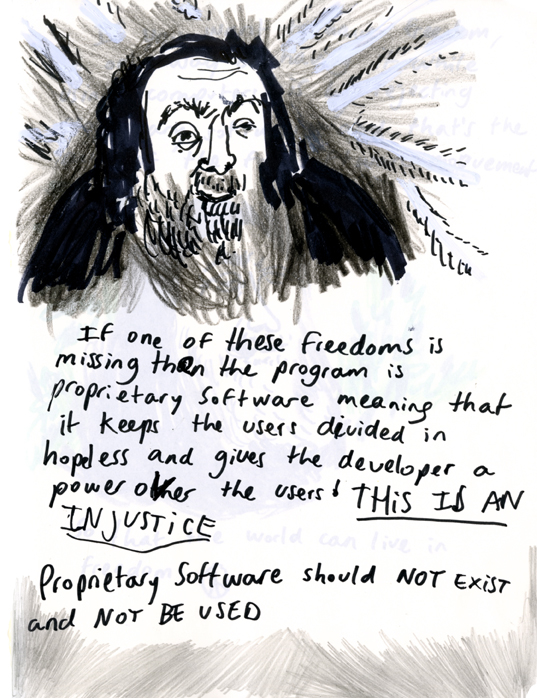 If one of these freedoms is
missing then the program is
proprietary software meaning that
it keeps the users divided in
hopless and gives the developer a
power over the users! THIS IS AN
INJUSTICE
Proprietary Software should NOT EXIST
and NOT BE USED